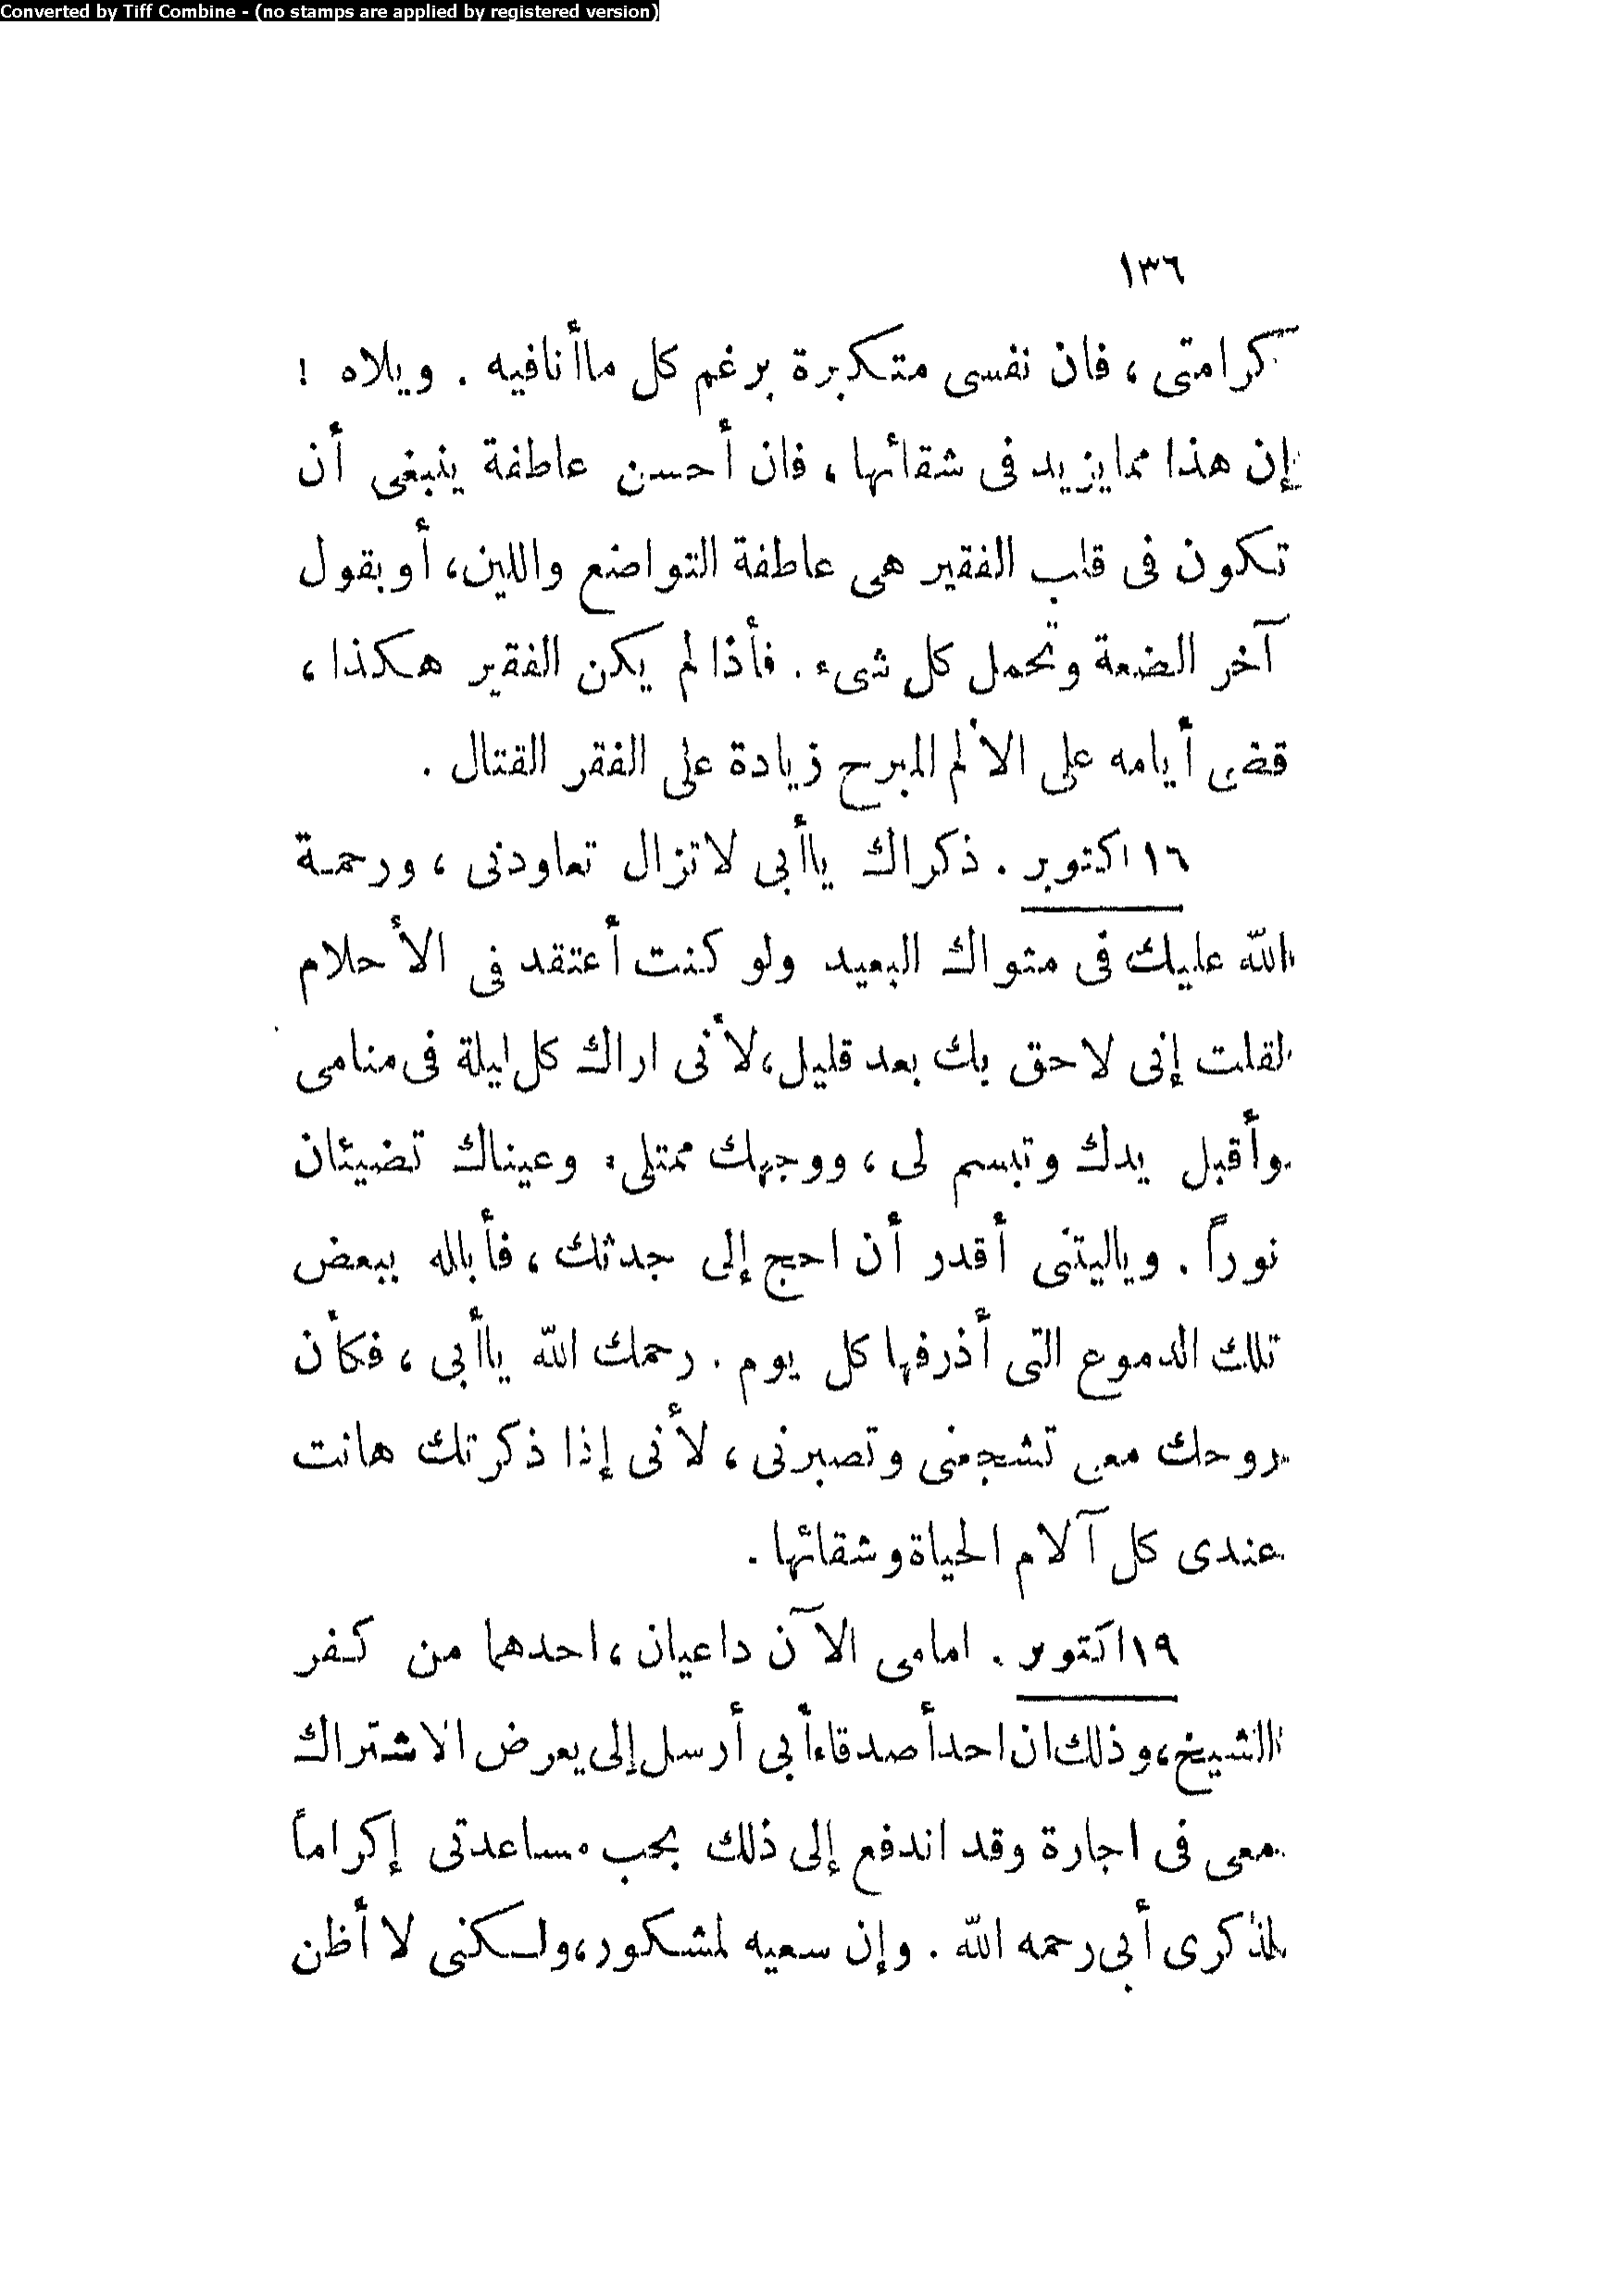 Converted by Tiff Combine - (no stamps are applied by registered version)
١٣٦
كرامتى ، فان نفسى متكبرة برغم كل ماأنافيه . ويلاه !
إن هذا مما يزيد فى شقائها ، فان أحسن عاطفة ينبغى أن
تكون فى قلب الفقير هى عاطفة التواضع واللين، أو بقول
آخر الضعة وتحمل كل شىء . فأذا لم يكن الفقير هكذا ،
قضى أيامه على الألم المبرح زيادة على الفقر القتال .
١٦ اكتوبر . ذكراك ياأبى لاتزال تعاودنى ، ورحمة
الله عليك فى مثواك البعيد ولو كنت أعتقد فى الأحلام
لقلت إنى لاحق بك بعد قليل، لأنى اراك كل ليلة فى منامى
وأقبل يدك وتبسم لى ، ووجهك ممتلىء وعيناك تضيئان
نوراً . وياليتنى أقدر أن احج إلى جدثك ، فأبلله ببعض
تلك الدموع التى أذرفها كل يوم . رحمك الله ياأبى ، فكأن
روحك معى تشجعنى وتصبرنى ، لأنى إذا ذكرتك هانت
عندى كل آلام الحياة وشقائها .
١٩ اكتوبر . امامى الآن داعيان ، احدهما من كفر
الشيخ، وذلك ان احد أصدقاء أبى أرسل إلى يعرض الاشتراك
معى فى اجارة وقد اندفع إلى ذلك بحب مساعدتى إكراماً
لذكرى أبى رحمه الله . وإن سعيه لمشكور، ولكنى لا أظن